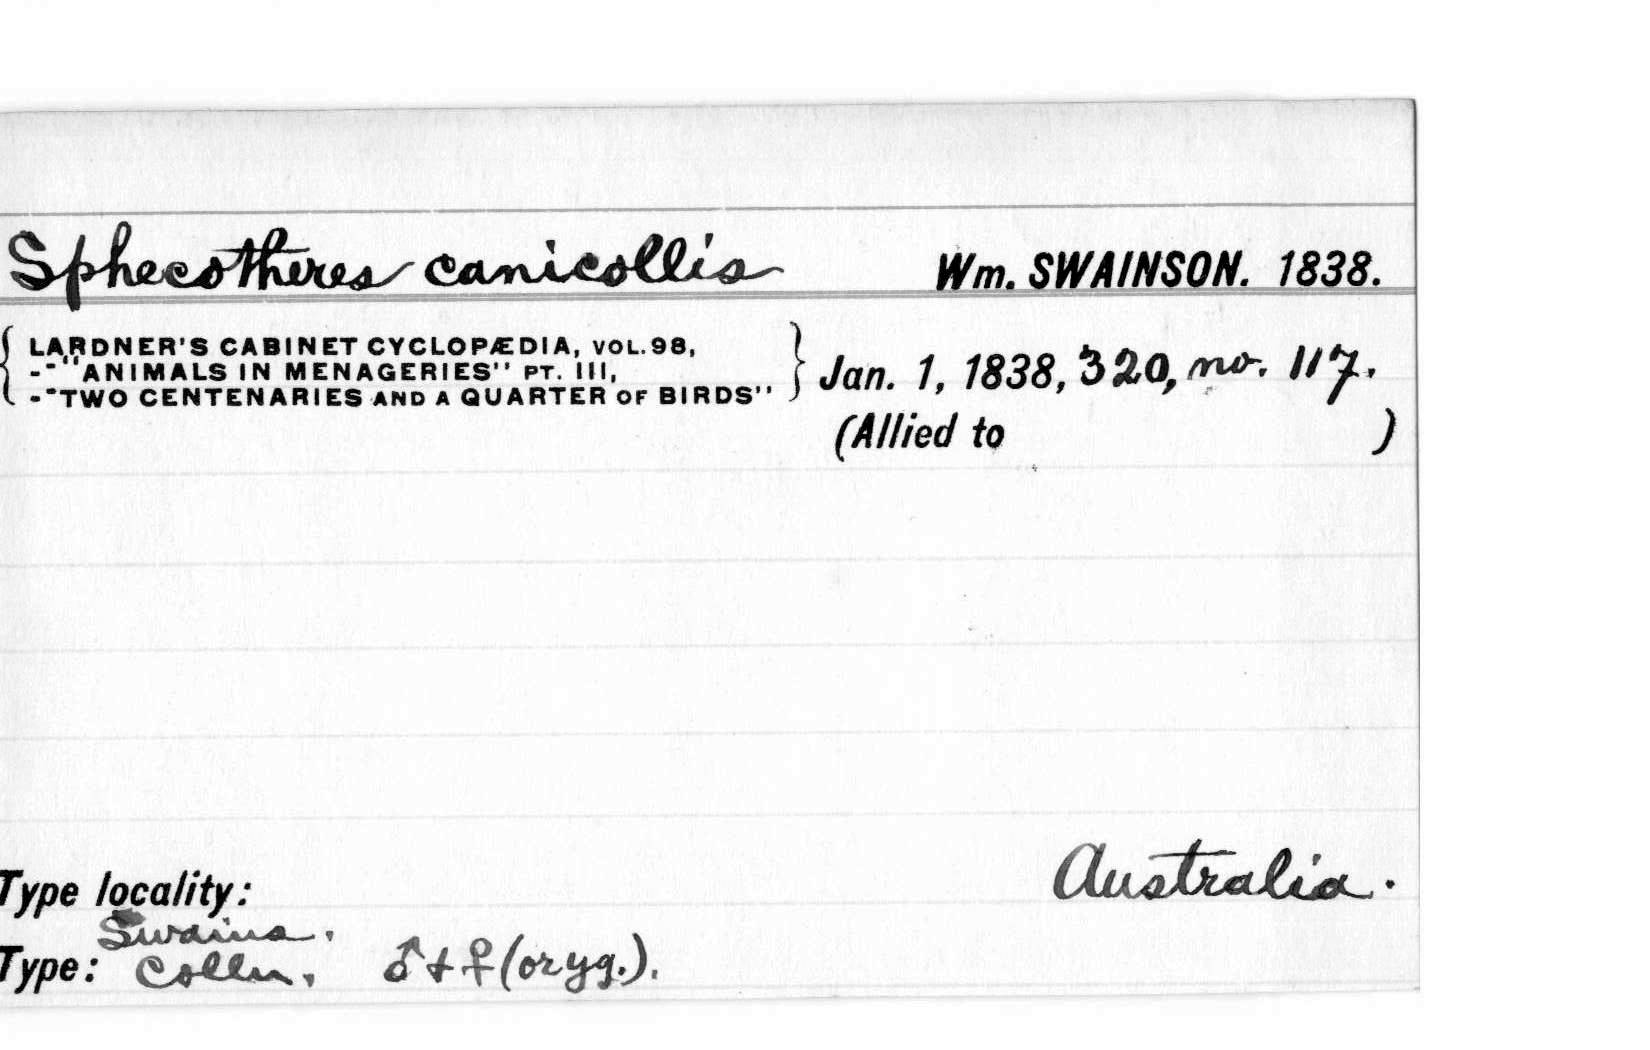 Sphecotheres canicollis Wm. SWAINSON. 1838.
LARDNER'S CABINET CYCLOPÆDIA, VOL.98,
-- "ANIMALS IN MENAGERIES" PT. III,
-"TWO CENTENARIES AND A QUARTER OF BIRDS"
Jan. 1, 1838, 320, no. 117.
(Allied to )
Australia.
Type locality:
Swains.
Type: Colln. ♂ + ♀ (oryg.).